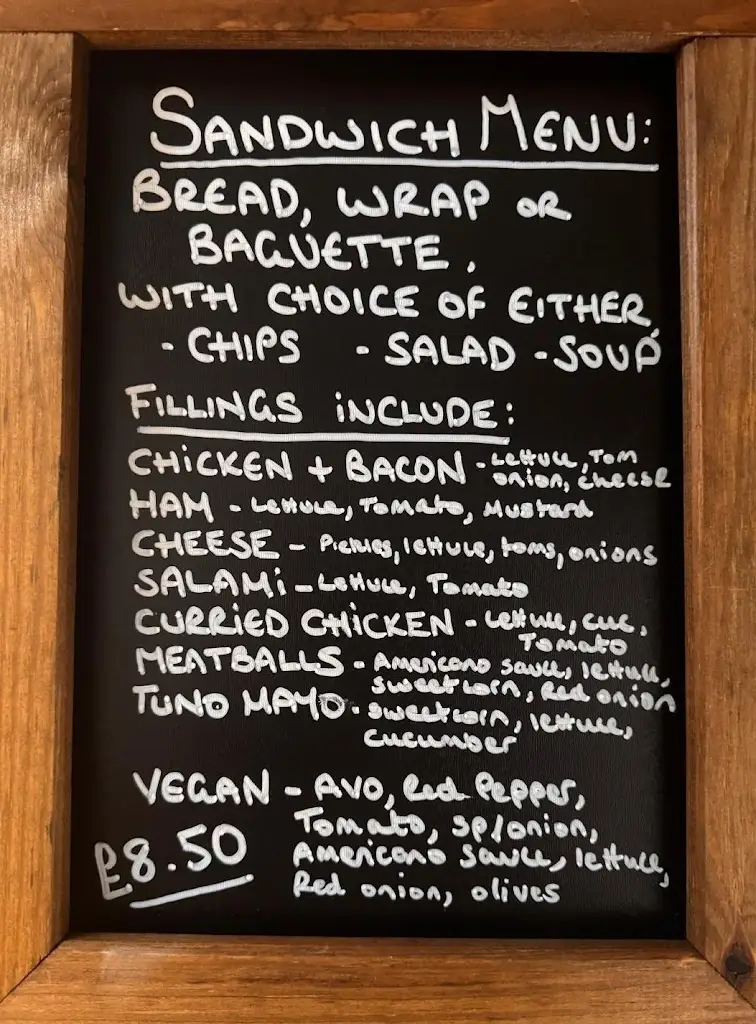 SANDWICH MENU:
BREAD, WRAP OR
BAGUETTE,
WITH CHOICE OF EITHER,
- CHIPS - SALAD - SOUP
FILLINGS iNCLUDE:
CHiCKEN + BACON - Lettuce, Tom
onion, cheese
HAM - Lettuce, Tomato, Mustard
CHEESE - Pickles, lettuce, toms, onions
SALAMi - Lettuce, Tomato
CURRiED CHiCKEN - Lettuce, cuc,
Tomato
MEATBALLS - Americano sauce, lettuce,
sweetcorn, Red onion
TUNO MAYO - sweetcorn, lettuce,
cucumber
VEGAN - AVO, Red Pepper,
Tomato, sp/onion,
Americano sauce, lettuce,
Red onion, olives
£8.50